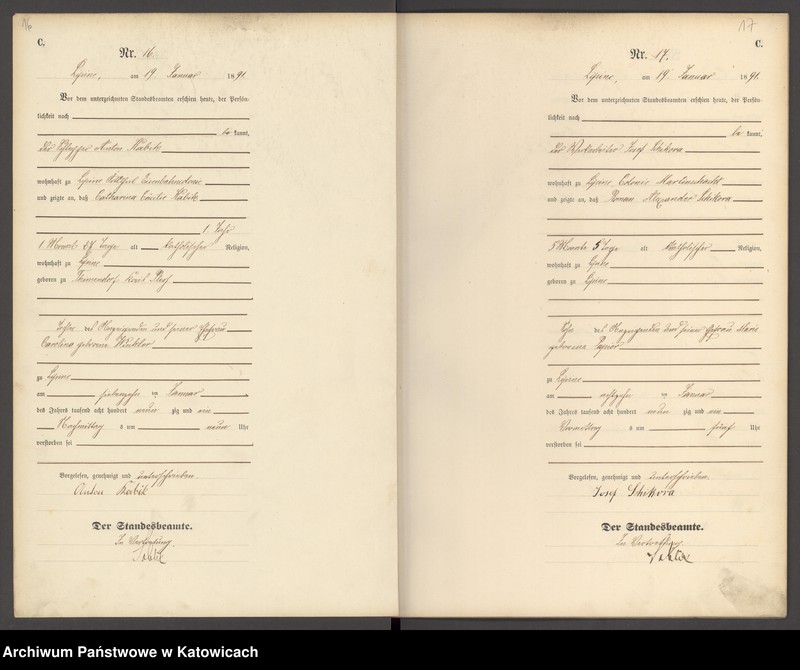 16
C.
Nr. 16.
Lipine, am 19 Januar 1891.
Vor dem unterzeichneten Standesbeamten erschien heute, der Persön-
lichkeit nach
be kannt,
der Anton Kabik
wohnhaft zu Lipine
und zeigte an, daß Catharina Kabik
1 Jahr
1 Monat 27 Tage alt katholischer Religion,
wohnhaft zu Lipine
geboren zu
Tochter des Anzeigenden und seiner Ehefrau
Carolina geborene Winkler
zu Lipine
am siebenzehn ten Januar
des Jahres tausend acht hundert neun zig und ein
Nachmittag s um neun Uhr
verstorben sei
Vorgelesen, genehmigt und unterschrieben.
Anton Kabik
Der Standesbeamte.
In Vertretung.
17
C.
Nr. 17.
Lipine, am 19 Januar 1891.
Vor dem unterzeichneten Standesbeamten erschien heute, der Persön-
lichkeit nach
be kannt,
der Josef Schikora
wohnhaft zu Lipine, Colonie
und zeigte an, daß Roman Alexander Schikora
5 Monate 5 Tage alt katholischer Religion,
wohnhaft zu Lipine
geboren zu Lipine
Sohn des Anzeigenden und seiner Ehefrau Marie
geborene
zu Lipine
am achtzehn ten Januar
des Jahres tausend acht hundert neun zig und ein
Vormittag s um fünf Uhr
verstorben sei
Vorgelesen, genehmigt und unterschrieben.
Josef Schikora
Der Standesbeamte.
In Vertretung.
Archiwum Państwowe w Katowicach